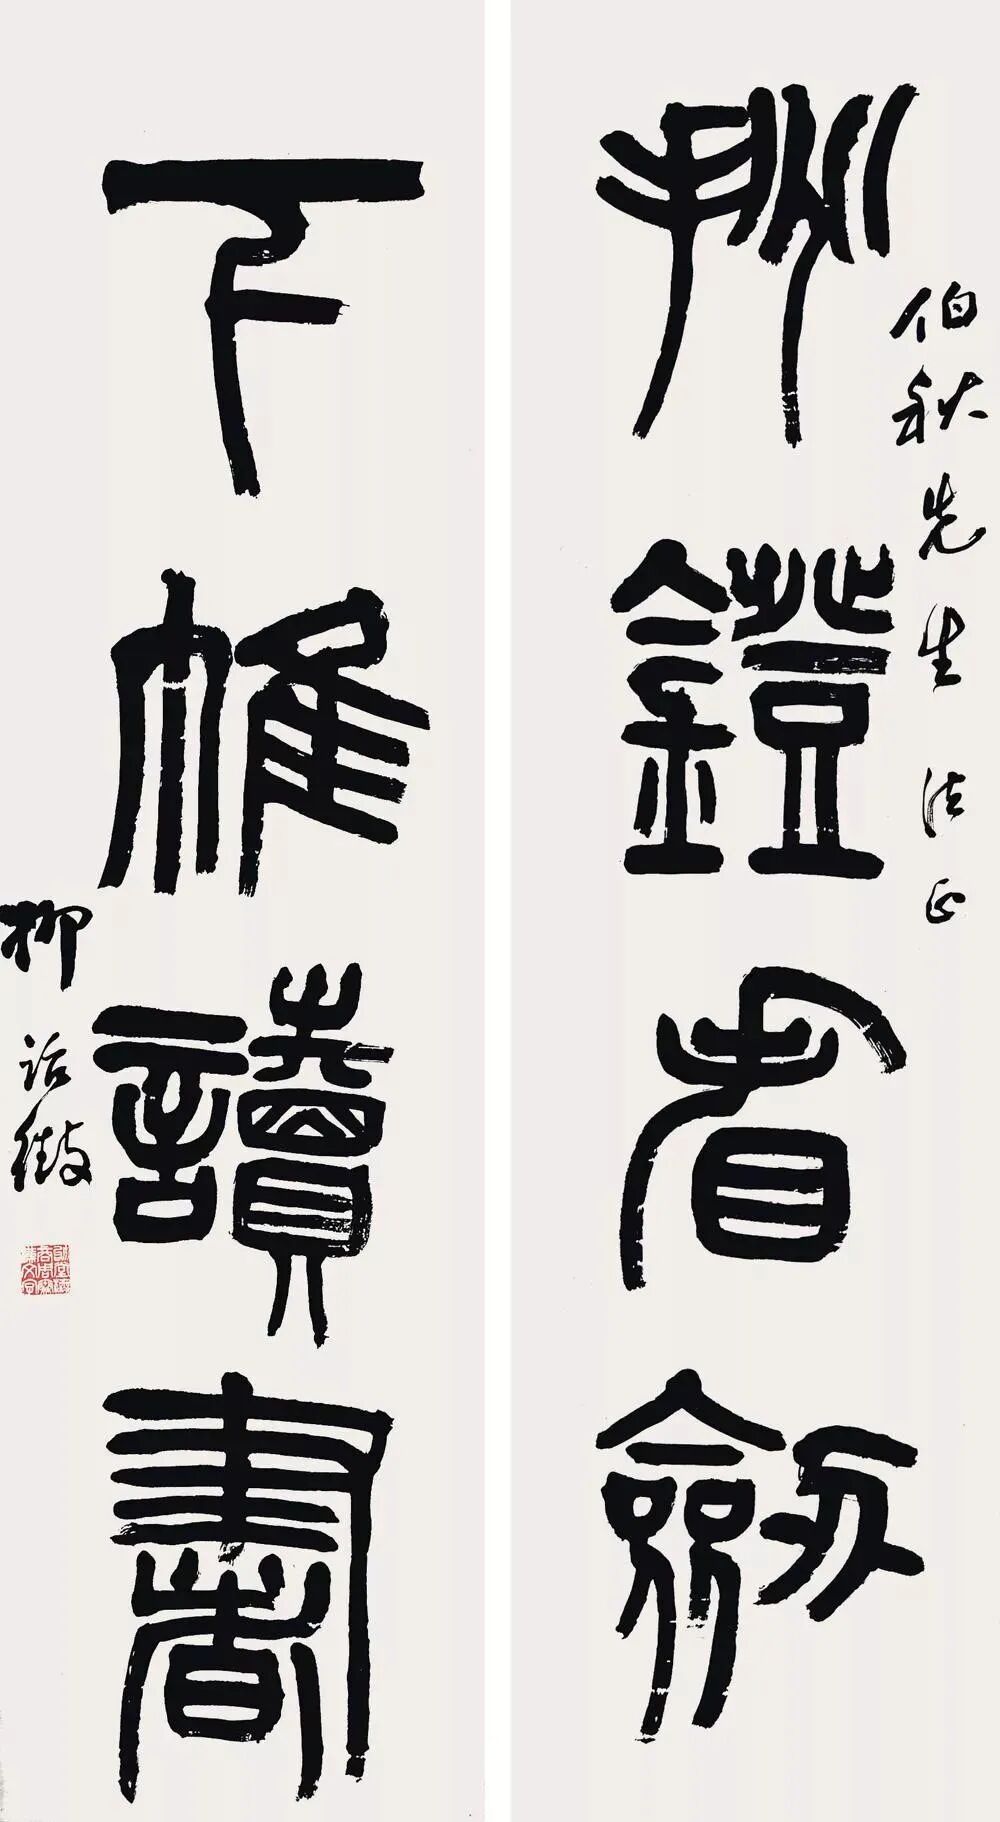 挑鐙看劍
伯秋先生法正
下帷讀書
柳詒徵